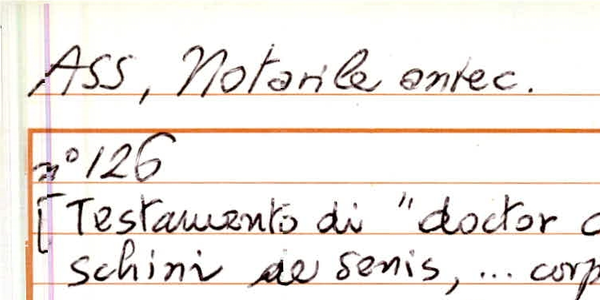 ASS, Notarile antec.
n° 126
[Testamento di "doctor
schini de Senis, ... corp